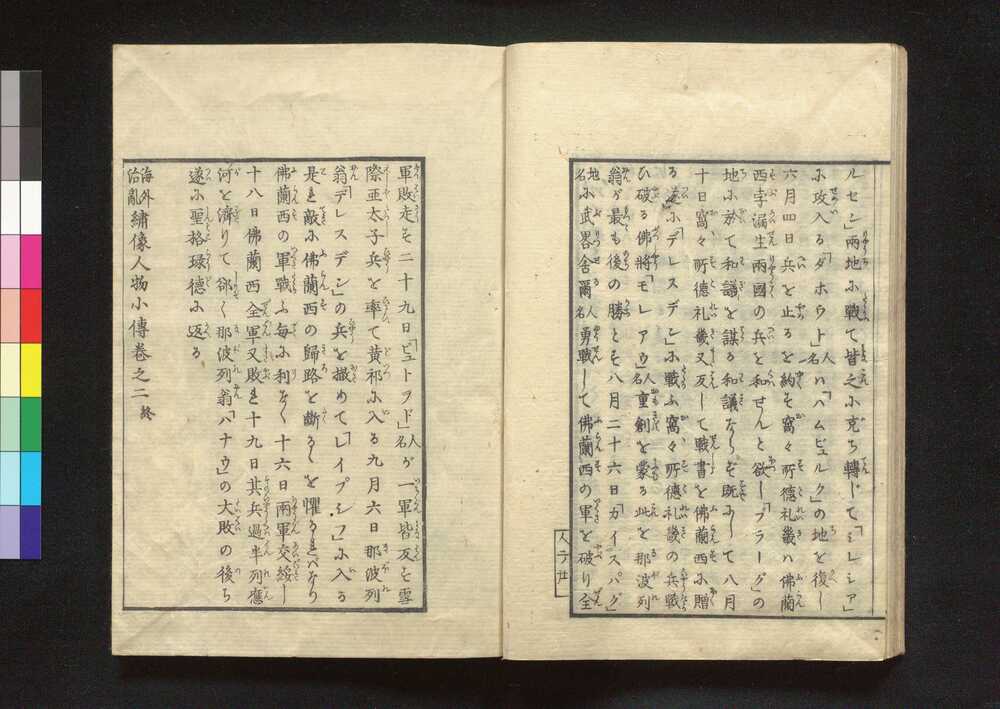 ルセン」兩地ホ戦て皆之ホ克ち轉じて「シレシア」
ホ攻入る「ダホウト」人名ハ「ハムビュルク」の地を復し
六月四日兵を止るを約そ窩々所德礼畿ハ佛蘭
西孛漏生兩國の兵を和せんと欲し「プラーグ」の
地ホ於て和議を謀る和議ならず既ホして八月
十日窩々所德礼畿又反して戰書を佛蘭西ホ贈
る遂ホ「デレスデン」ホ戰ふ窩々所德礼畿の兵戰
ひ破る佛將「モレアウ」人名重創を蒙る此を那波列
翁が最も後の勝とそ八月二十六日「カイスバグ」
地名ホ武畧舍爾人名勇戰して佛蘭西の軍を破り全
人ノ廿
軍敗走そ二十九日「ビュトラド」人名が一軍皆反そ雪
際亜太子兵を率て黄祁ホ入る九月六日那波列
翁「デレスデン」の兵を撤めて「レイプシフ」ホ入る
是を敵ホ佛蘭西の歸路を斷るゝを懼るゝバなり
佛蘭西の軍戰ふ毎ホ利なく十六日兩軍交綏し
十八日佛蘭西全軍又敗を十九日其兵過半列應
河を濟りて郤く那波列翁「ハナウ」の大敗の後ち
遂ホ聖格琭德ホ返る
海外治亂繡像人物小傳巻之二終